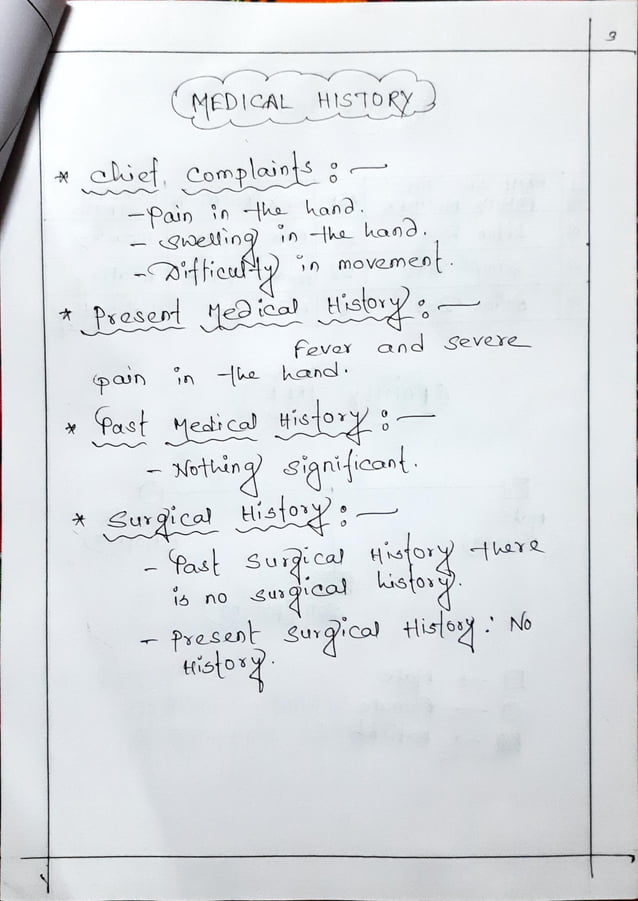 3
MEDICAL HISTORY
* Chief Complaints :-
- Pain in the hand.
- Swelling in the hand.
- Difficulty in movement.
* Present Medical History :-
Fever and severe
pain in the hand.
* Past Medical History :-
- Nothing significant.
* Surgical History :-
- Past Surgical History there
is no surgical history.
- Present Surgical History : No
History.